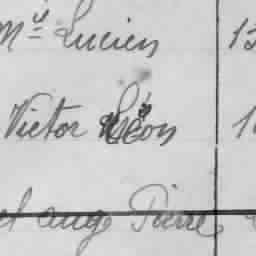 My Lucien 1
Victor Léon 1
ange Pierre